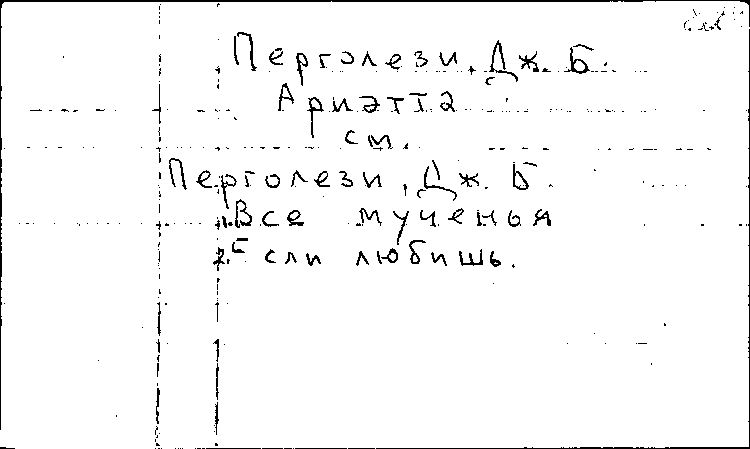 Перголези, Дж. Б.
Ариэтта
см.
Перголези, Дж. Б.
1. Все мученья
2. Если любишь.